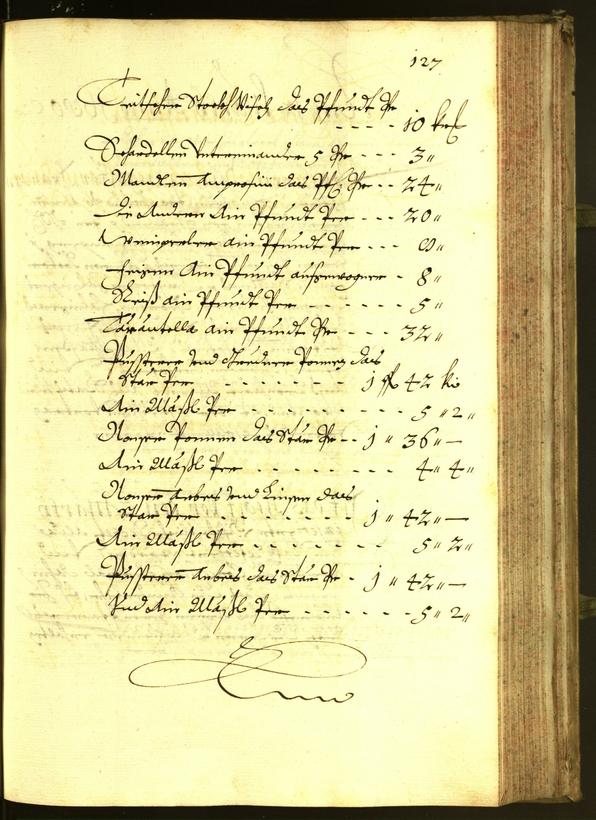 127
das Pfundt Pr
---- 10 krl
Schardellen Untereinander 5 Pr --- 3 "
Mandlen Ambrosini das Pf: Pr -- 24 "
die Anderen Ain Pfundt Per -- 20 "
Weinperlen ain Pfundt Per --- 8 "
Feigen Ain Pfundt außgewogene - 8 "
Reiß ain Pfundt Per ------ 5 "
Tarantella ain Pfundt Pr --- 32 "
Pusstrer Und Ponnen das
Star Per -------- 1 fl 42 kr
Ain Mässl Per --------- 5 " 2 "
Nonser Ponnen das Star Pr -- 1 " 36 " —
Ain Mässl Per ------- 4 " 4 "
Nonser Arbes Und Linsen das
Star Per -------- 1 " 42 " —
Ain Mässl Per ------- 5 " 2 "
Pusstrer Arbes das Star Pr - 1 " 42 " —
Und Ain Mässl Per ------ 5 " 2 "